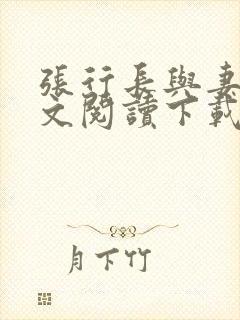 張行長與妻
文閱讀下載
月下竹